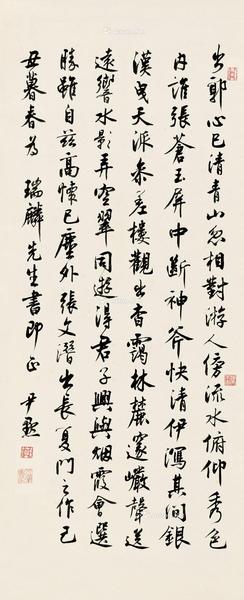 出郭心已清青山忽相對游人傍流水俯仰秀色
内誰張蒼玉屏中斷神斧快清伊瀉其間銀
漢曳天派參差樓觀出杳靄林麓邃巖聲送
遠響水影弄空翠同遊得君子興與烟霞會選
勝雖自茲高懷已塵外張文潛出長夏門之作己
丑暮春為 瑞麟先生書即正 尹默